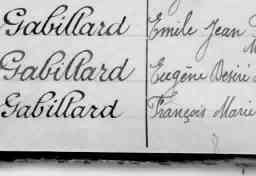 Gabillard Emile Jean
Gabillard Eugène Desiré
Gabillard François Marie